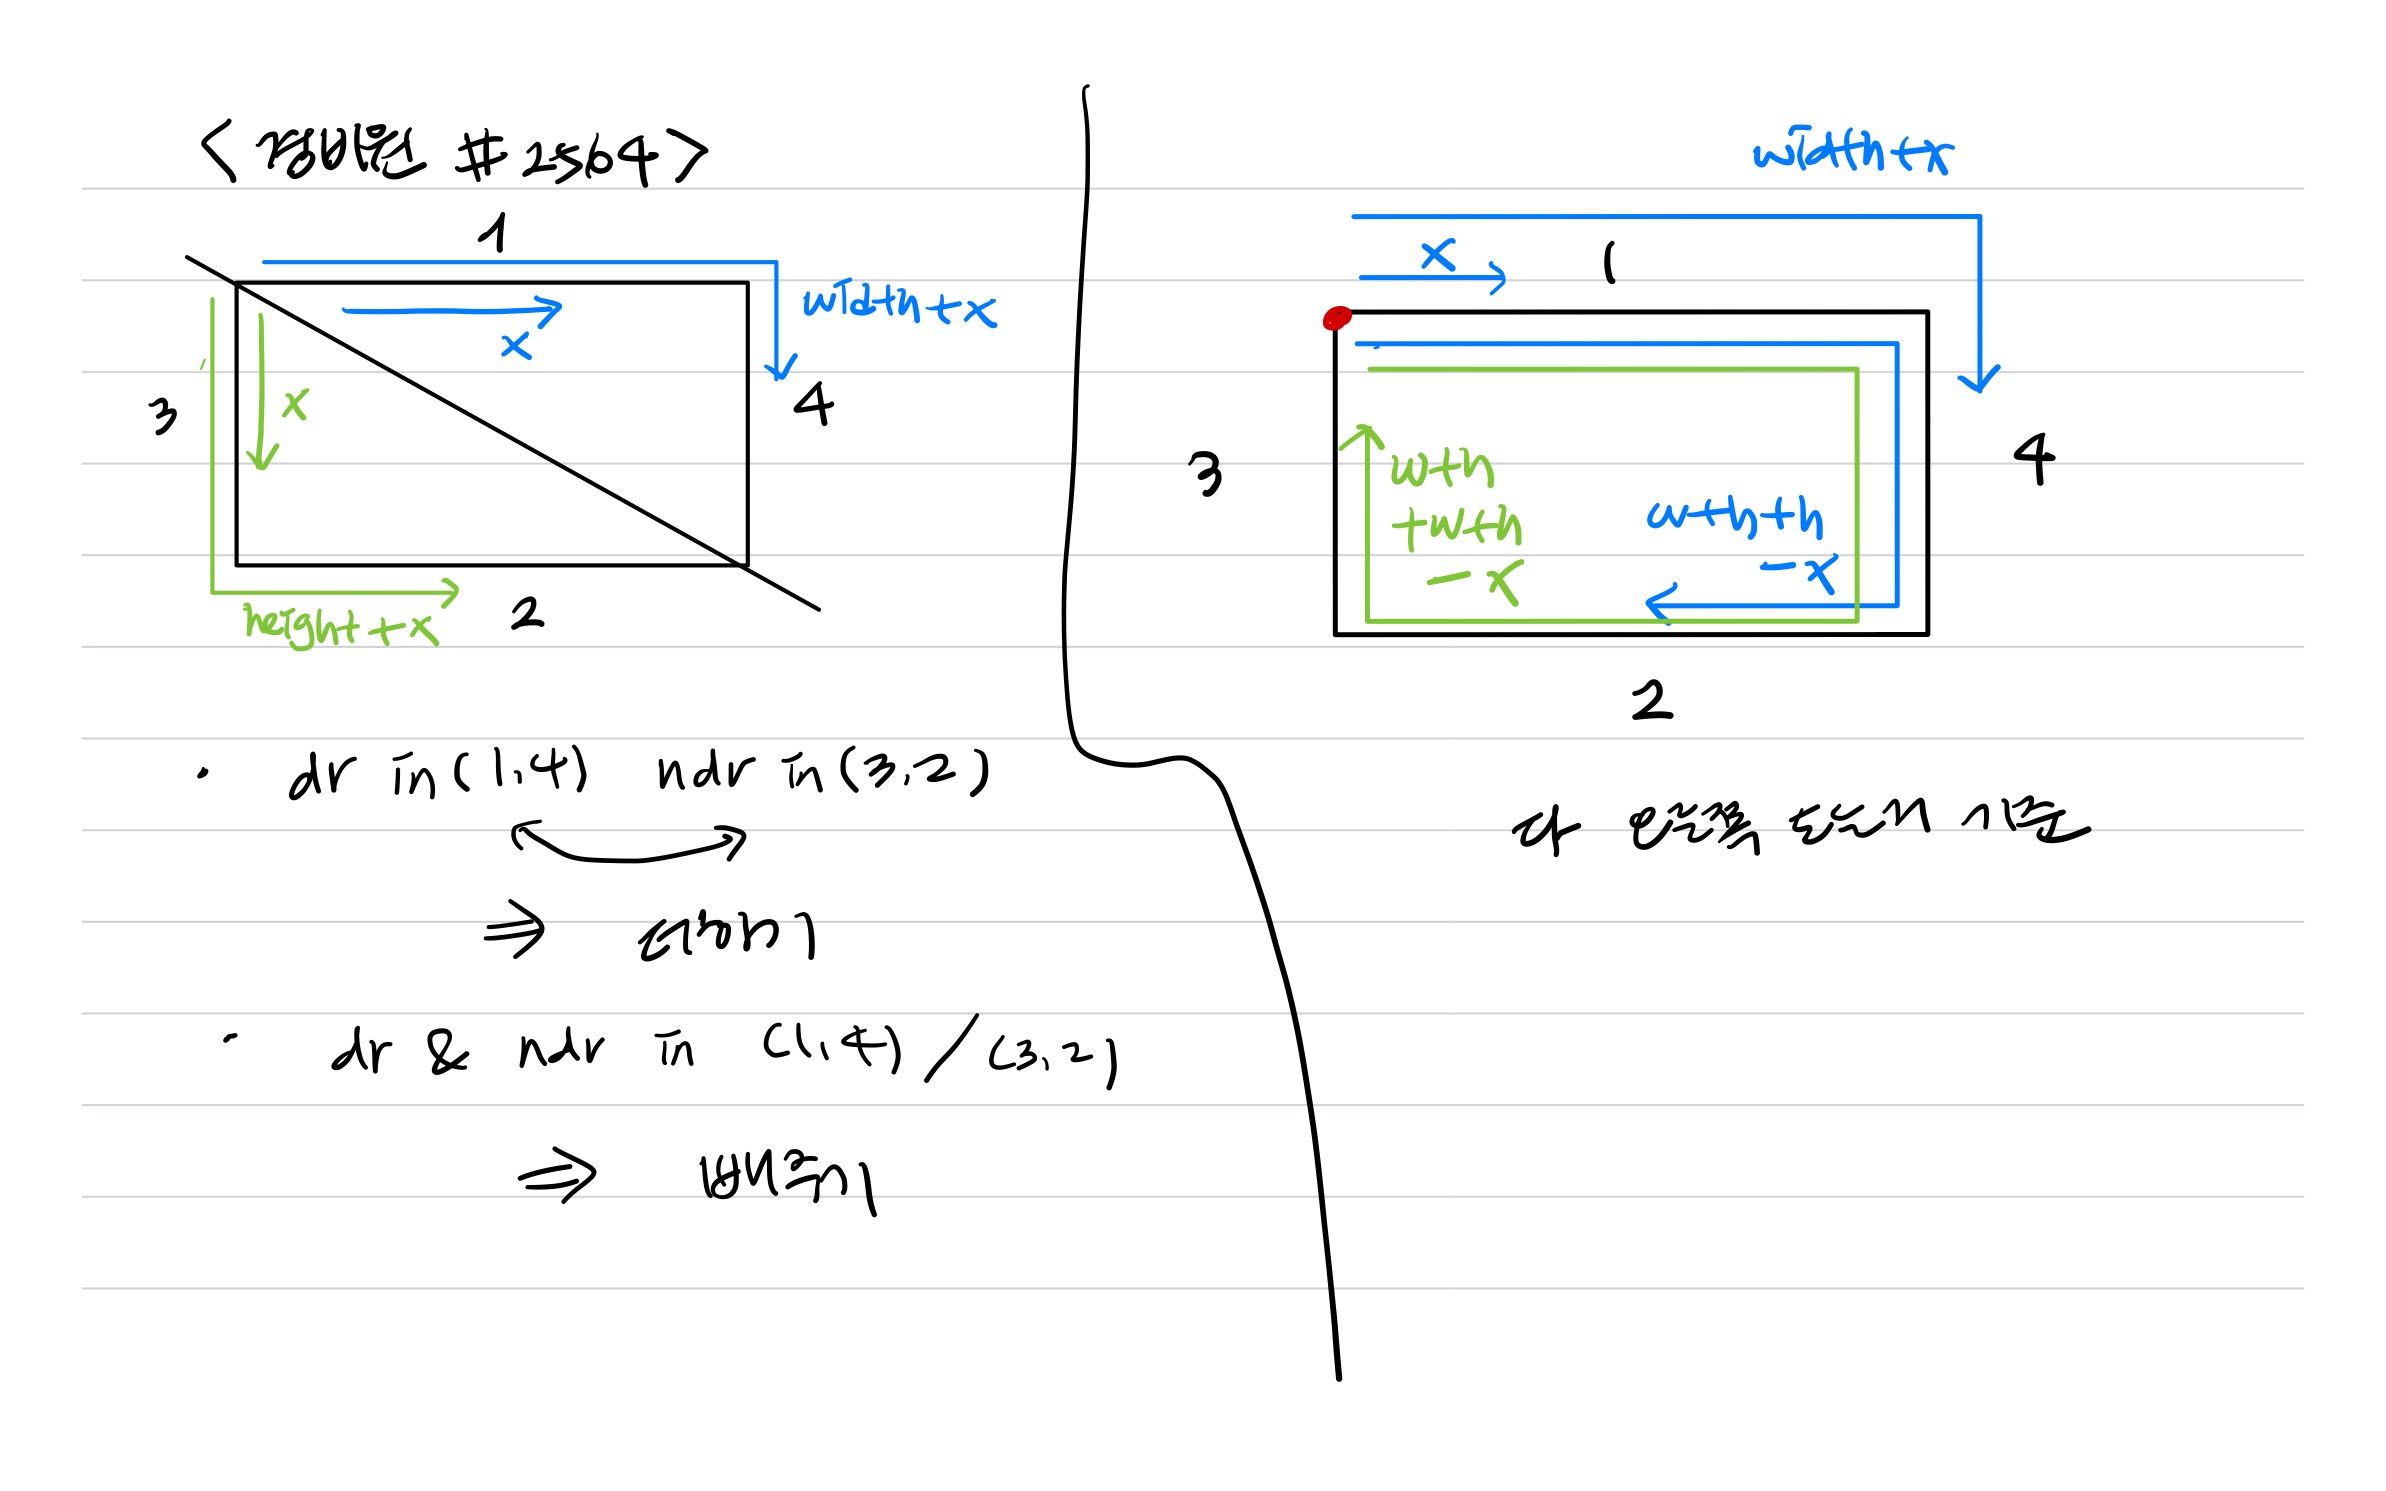 < 경비원 #2564>
1
width+x
x
3
x
4
height+x
2
· dr in(1,4) ndr in (3,2)
⇒ 더하기
· dr & ndr in (1,4) / (3,2)
⇒ 빼기
width+x
x
1
3
w+h
+w+h
- x
w+h+h
- x
4
2
한 기준